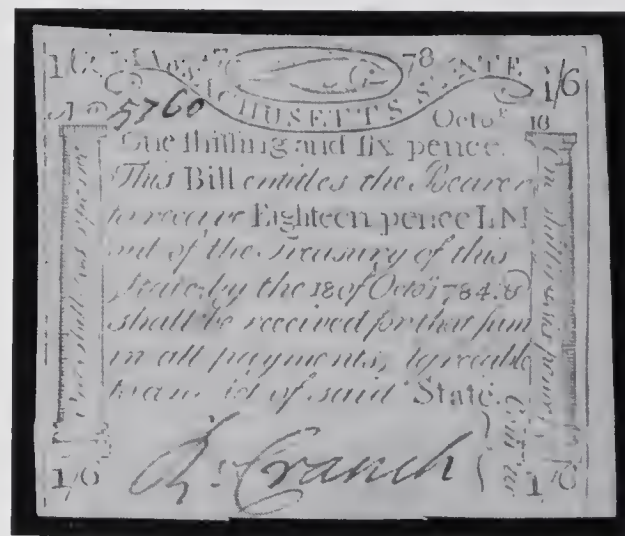 1/6 17 78 1/6
MASSACHUSETTS STATE
No 5760 Octor 18
One shilling and six pence.
This Bill entitles the Bearer
to receive Eighteen pence LM
out of the Treasury of this
State, by the 18 of Octor 1784. &
shall be received for that sum
in all payments, agreeable
to an Act of said State.
One shilling & six pence
R. Cranch
1/6 1/6